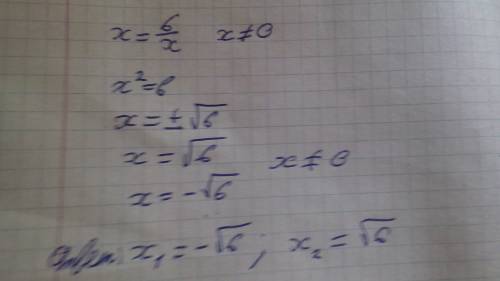 x = 6/x   x ≠ 0
x² = 6
x = ± √6
x = √6   x ≠ 0
x = -√6
Ответ: x₁ = -√6 ; x₂ = √6